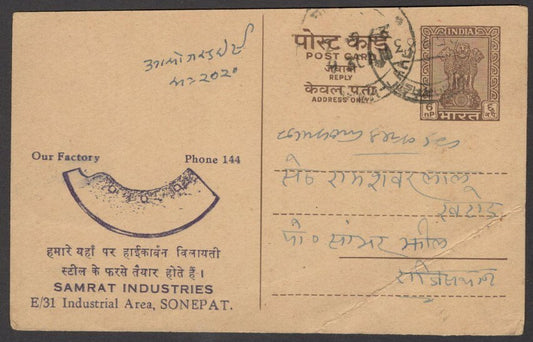 पोस्ट कार्ड
POST CARD
जवाबी
REPLY
केवल पता
ADDRESS ONLY
INDIA
6 nP
६ न.पै.
भारत
Our Factory
Phone 144
हमारे यहाँ पर हाईकार्बन विलायती
स्टील के फरसे तैयार होते हैं ।
SAMRAT INDUSTRIES
E/31 Industrial Area, SONEPAT.
२०२०
सेठ रामेश्वरलाल
पो० सांभर झील